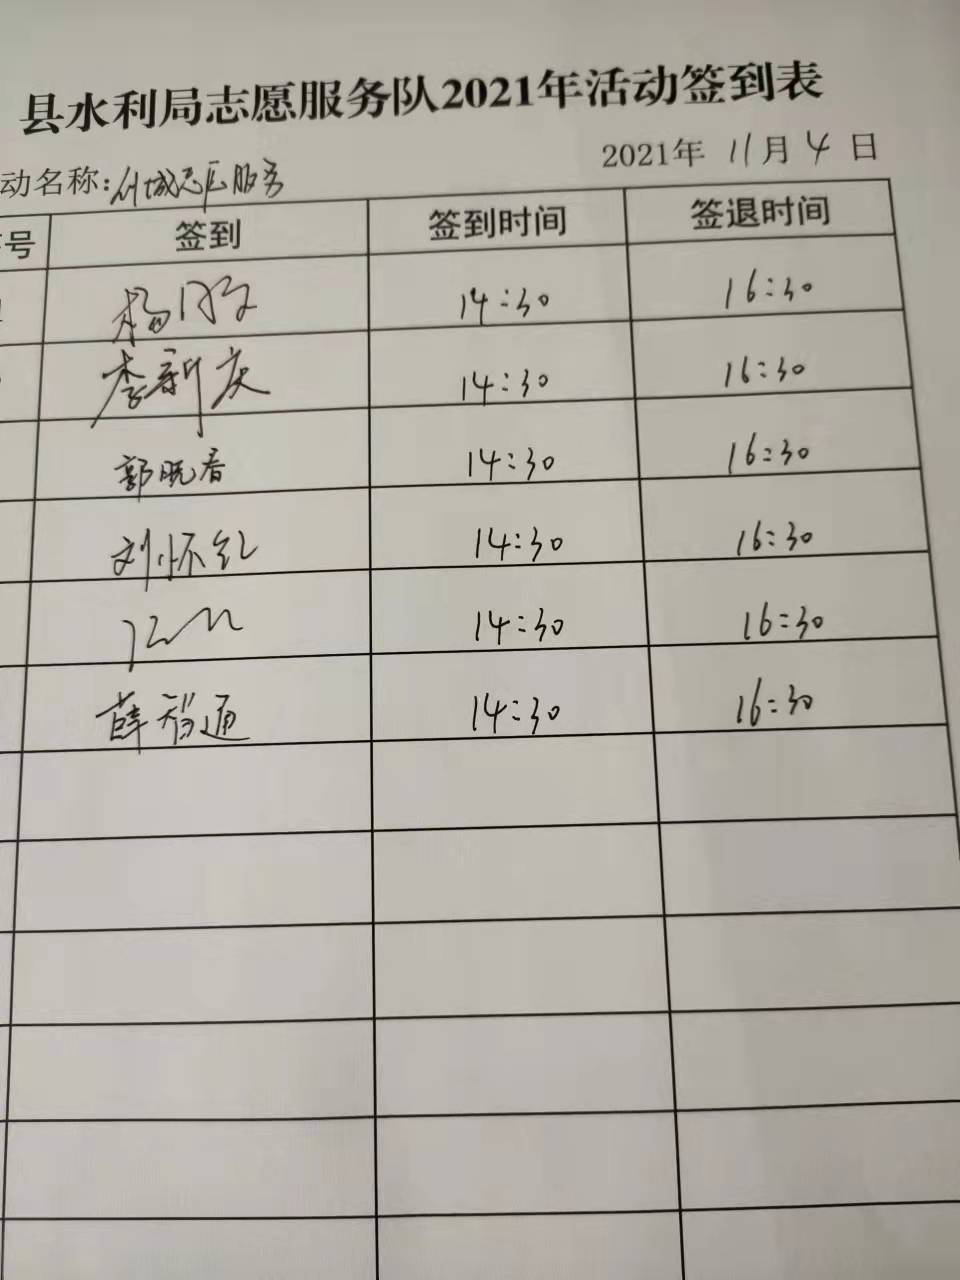 县水利局志愿服务队2021年活动签到表
动名称:创城志愿服务 2021年 11月 4 日
号 签到 签到时间 签退时间
14:30 16:30
李新庆 14:30 16:30
郭晓春 14:30 16:30
刘怀红 14:30 16:30
14:30 16:30
薛智通 14:30 16:30